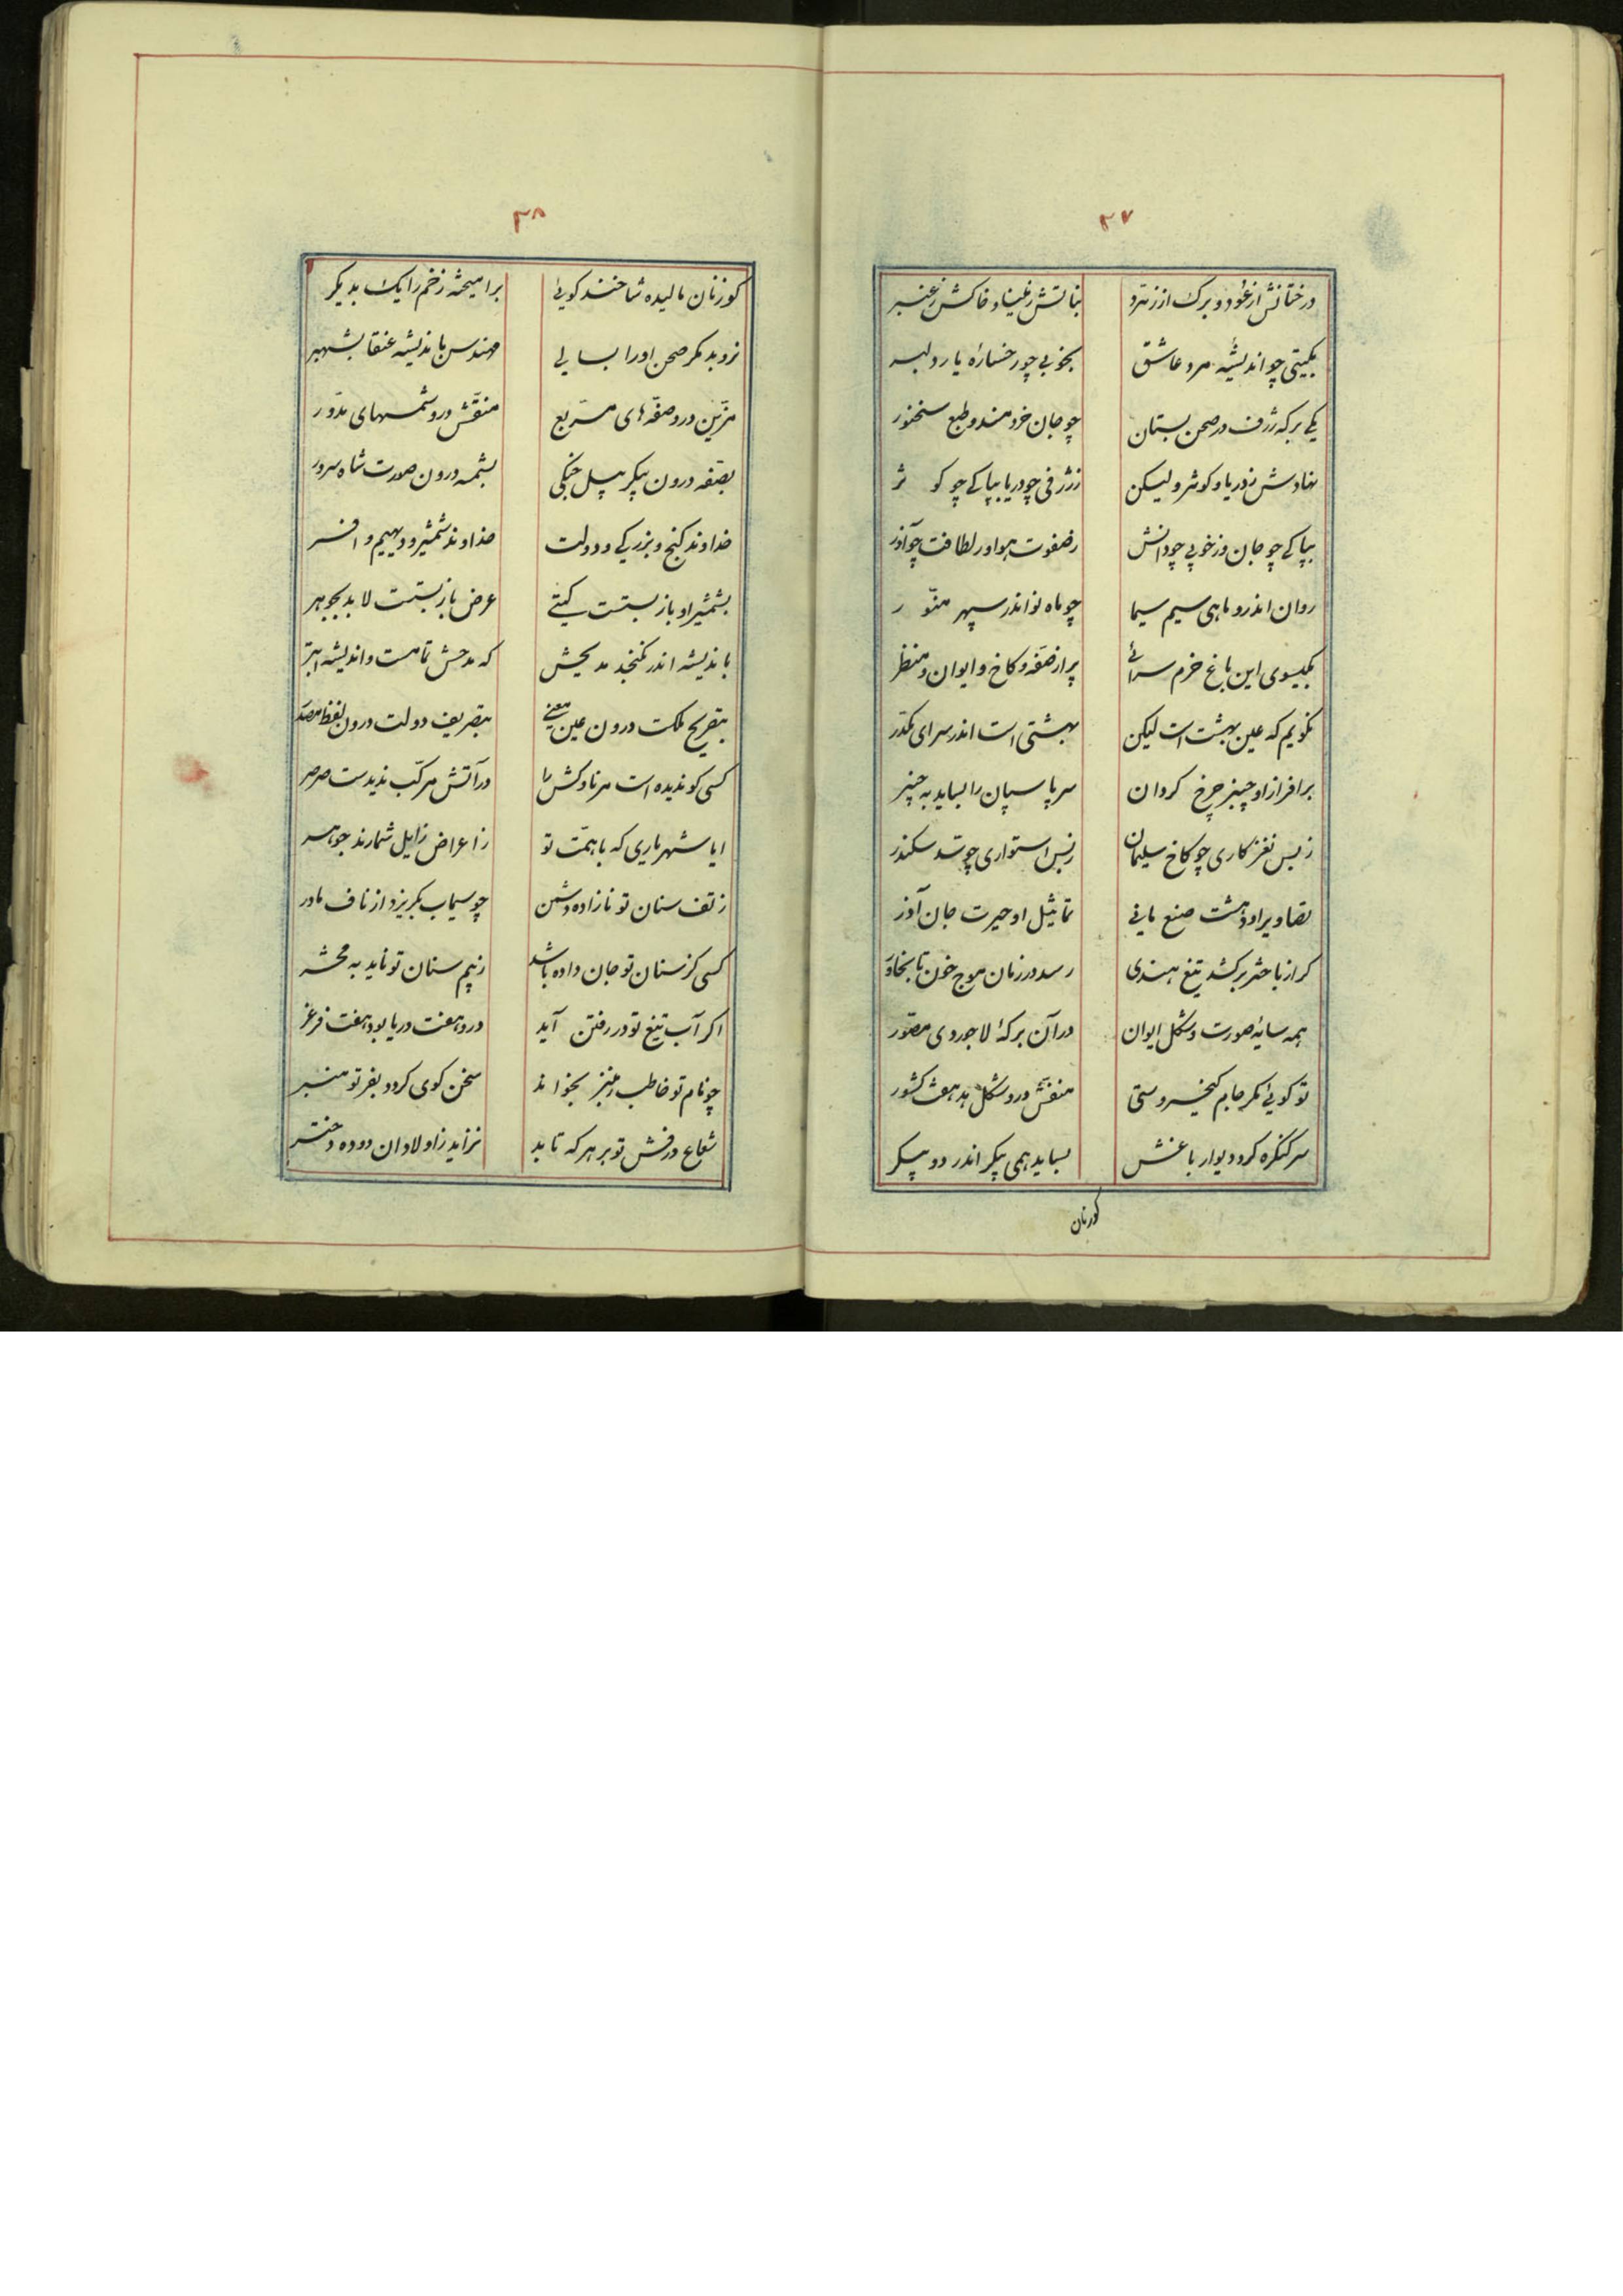 ۳۷
درختانش از عود و برک از زمرد بناتش ز مینا و خاکش ز عنبر
بکیتی چو اندیشهٔ مرد عاشق بخوبی چو رخسارهٔ یار دلبر
یکی برکه ژرف در صحن بستان چو جان خردمند و طبع سخنور
نهادش نه دریا و کوثر ولیکن بژرفی چو دریا بپاکی چو کوثر
بپاکی چو جان وز خوبی چو دانش ز صفوت هوا و ز لطافت چو آذر
روان اندرو ماهی سیم سیما چو ماه نو اندر سپهر منوّر
بیکسوی این باغ خرم سرائی پر از صفّه و کاخ و ایوان و منظر
نکویم که عین بهشت است لیکن بهشتی است اندر سرای مکدّر
بر افراز او چنبر چرخ کردان سر پاسبان را بساید به چنبر
ز بس نغز کاری چو کاخ سلیمان ز بس استواری چو سدّ سکندر
تصاویر او دهشت صنع مانی تماثیل او حیرت جان آذر
کر از باختر برکشد تیغ هندی رسد در زمان موج خون تا بخاور
همه سایهٔ صورت و شکل ایوان در آن برکهٔ لاجوردی مصوّر
تو کوئی مکر جام کیخسروستی منقّش درو شکل هر هفت کشور
سر کنکره کرد دیوار باغش بساید همی پیکر اندر دو پیکر
کوزنان
۳۸
کوزنان مالیده شاخند کوئی برامیخته زخم را یک بدیکر
نرو بد مکر صحن اورا بسالی مهندس باندیشه عنقا بشهپر
مزیّن درو صفّه‌های مربع منقّش درو شمسهای مدوّر
بصفّه درون پیکر پیل جنکی بشمسه درون صورت شاه سرور
خداوند کنج و بزرکی و دولت خداوند شمشیر و دیهیم و افسر
بشمشیر او باز بستست کیتی عرض باز بستست لابد بجوهر
باندیشه اندر نکنجد مدیحش که مدحش تمامست و اندیشه ابتر
بتصریح ملکت درون عین معنی بتصریف دولت درون لفظ مصدر
کسی کو ندیده است مر ناوکش را در آتش مرکّب ندیدست صرصر
ایا شهریاری که با همّت تو ز اعراض زایل شمارند جوهر
ز تف سنان تو نازاده دشمن چو سیماب بکریزد از ناف مادر
کسی کز سنان تو جان داده باشد ز بیم سنان تو ناید به محشر
اکر آب تیغ تو در رفتن آید درو هفت دریا بود هفت فرغر
چو نام تو خاطب بمنبر بخواند سخن کوی کردد بفر تو منبر
شعاع درفش تو بر هر که تابد نزاید ز اولاد آن دوده دختر